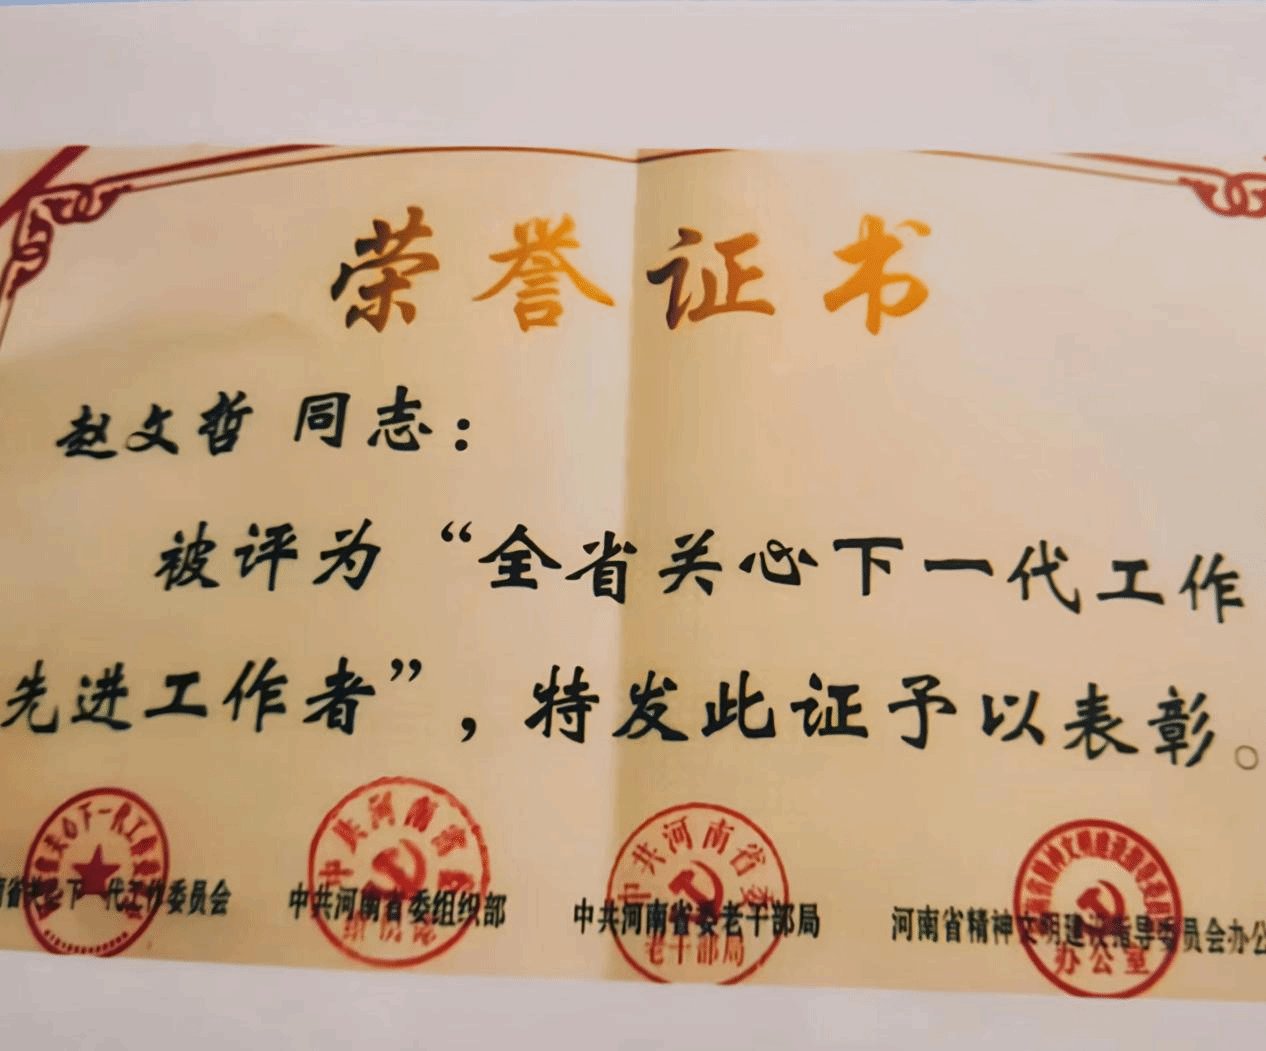 荣誉证书
赵文哲 同志：
被评为“全省关心下一代工作
先进工作者”，特发此证予以表彰。
南省关心下一代工作委员会 中共河南省委组织部 中共河南省委老干部局 河南省精神文明建设指导委员会办公
中共河南省委
老干部局
办公室